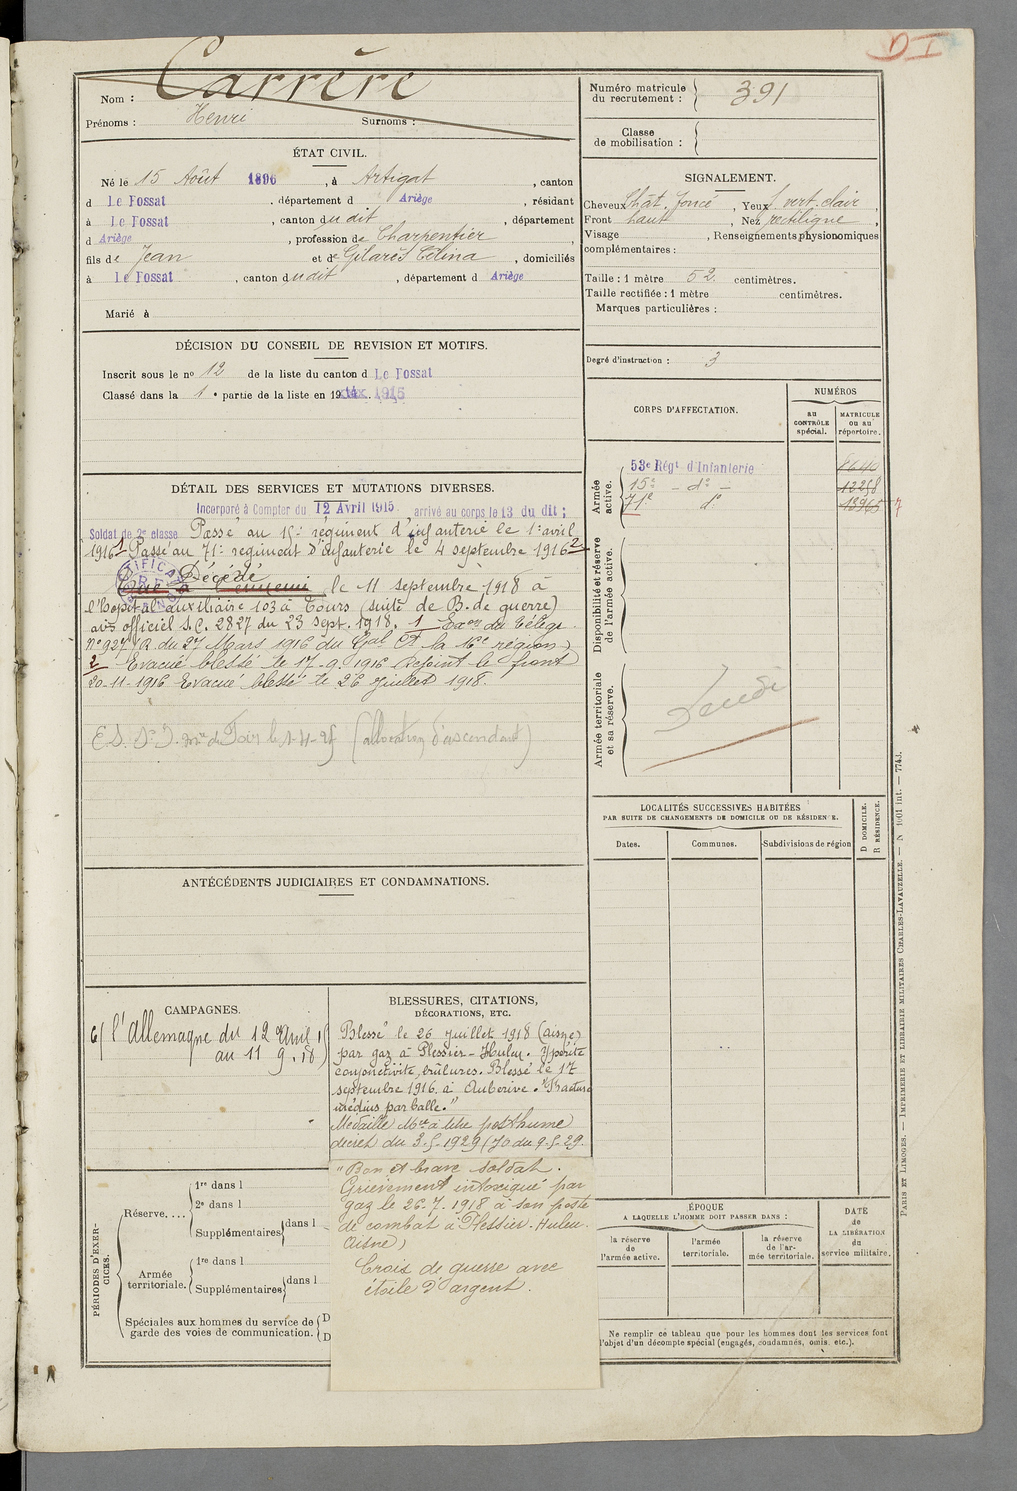 D I
Nom : Carrère
Prénoms : Henri Surnoms :
Numéro matricule
du recrutement : 391
Classe
de mobilisation :
ÉTAT CIVIL.
Né le 15 Août 1896, à Artigat, canton
d Le Fossat, département d Ariège, résidant
à Le Fossat, canton dudit, département
d Ariège, profession de Charpentier,
fils de Jean et de Gilarès Célina, domiciliés
à Le Fossat, canton dudit, département d Ariège
Marié à
SIGNALEMENT.
Cheveux chât. foncé, Yeux vert clair,
Front haut, Nez rectiligne,
Visage, Renseignements physionomiques
complémentaires :
Taille : 1 mètre 52 centimètres.
Taille rectifiée : 1 mètre centimètres.
Marques particulières :
Degré d'instruction : 3
DÉCISION DU CONSEIL DE REVISION ET MOTIFS.
Inscrit sous le no 12 de la liste du canton d Le Fossat
Classé dans la 1e partie de la liste en 19 1915
CORPS D'AFFECTATION.
NUMÉROS
au
CONTRÔLE
spécial.
MATRICULE
ou au
répertoire.
Armée
active.
53e Régt d'Infanterie
15e - do - 12258
71e do 13965
Disponibilité et réserve
de l'armée active.
Armée territoriale
et sa réserve.
DÉTAIL DES SERVICES ET MUTATIONS DIVERSES.
Incorporé à Compter du 12 Avril 1915 arrivé au corps le 13 du dit ;
Soldat de 2e classe Passé au 15e régiment d'infanterie le 1er avril
1916 1 Passé au 71e régiment d'infanterie le 4 septembre 1916 2
Décédé
Tué à l'ennemi le 11 septembre 1918 à
l'hopital auxiliaire 103 à Tours (suite de B. de guerre)
avis officiel S.C. 2827 du 23 sept. 1918. 1 Exon du Télégr.
no 927/R du 27 Mars 1916 du Gal Ct la 16e région)
2 Evacué blessé le 17-9-1916 rejoint le front
20-11-1916 Evacué blessé le 26 juillet 1918.
(allocation d'ascendant)
LOCALITÉS SUCCESSIVES HABITÉES
PAR SUITE DE CHANGEMENTS DE DOMICILE OU DE RÉSIDENCE.
Dates.
Communes.
Subdivisions de région
D DOMICILE.
R RÉSIDENCE.
ANTÉCÉDENTS JUDICIAIRES ET CONDAMNATIONS.
CAMPAGNES.
c/ l'Allemagne du 12 avril 15
au 11-9-18)
BLESSURES, CITATIONS,
DÉCORATIONS, ETC.
Blessé le 26 juillet 1918 (aisne)
par gaz à Plessier-Huleu. Ypérite
conjonctivite, brûlures. Blessé le 17
septembre 1916 à Auberive. "Fracture
médius par balle."
Médaille Mre à titre posthume
decret du 3-5-1929 (JO du 9-5-29.
"Bon et brave soldat.
Grièvement intoxiqué par
gaz le 26-7-1918 à son poste
de combat à Plessier-Huleu.
aisne)
Croix de guerre avec
étoile d'argent.
PÉRIODES D'EXERCICES.
Réserve....
1re dans l
2e dans l
Supplémentaires dans l
Armée
territoriale.
1re dans l
Supplémentaires dans l
Spéciales aux hommes du service de
garde des voies de communication. D
D
ÉPOQUE
A LAQUELLE L'HOMME DOIT PASSER DANS :
la réserve
de
l'armée active.
l'armée
territoriale.
la réserve
de l'ar-
mée territoriale.
DATE
de
LA LIBÉRATION
du
service militaire.
Ne remplir ce tableau que pour les hommes dont les services font
l'objet d'un décompte spécial (engagés, condamnés, omis, etc.).
PARIS ET LIMOGES. — IMPRIMERIE ET LIBRAIRIE MILITAIRES CHARLES-LAVAUZELLE. — N 1001 int. — 7743.